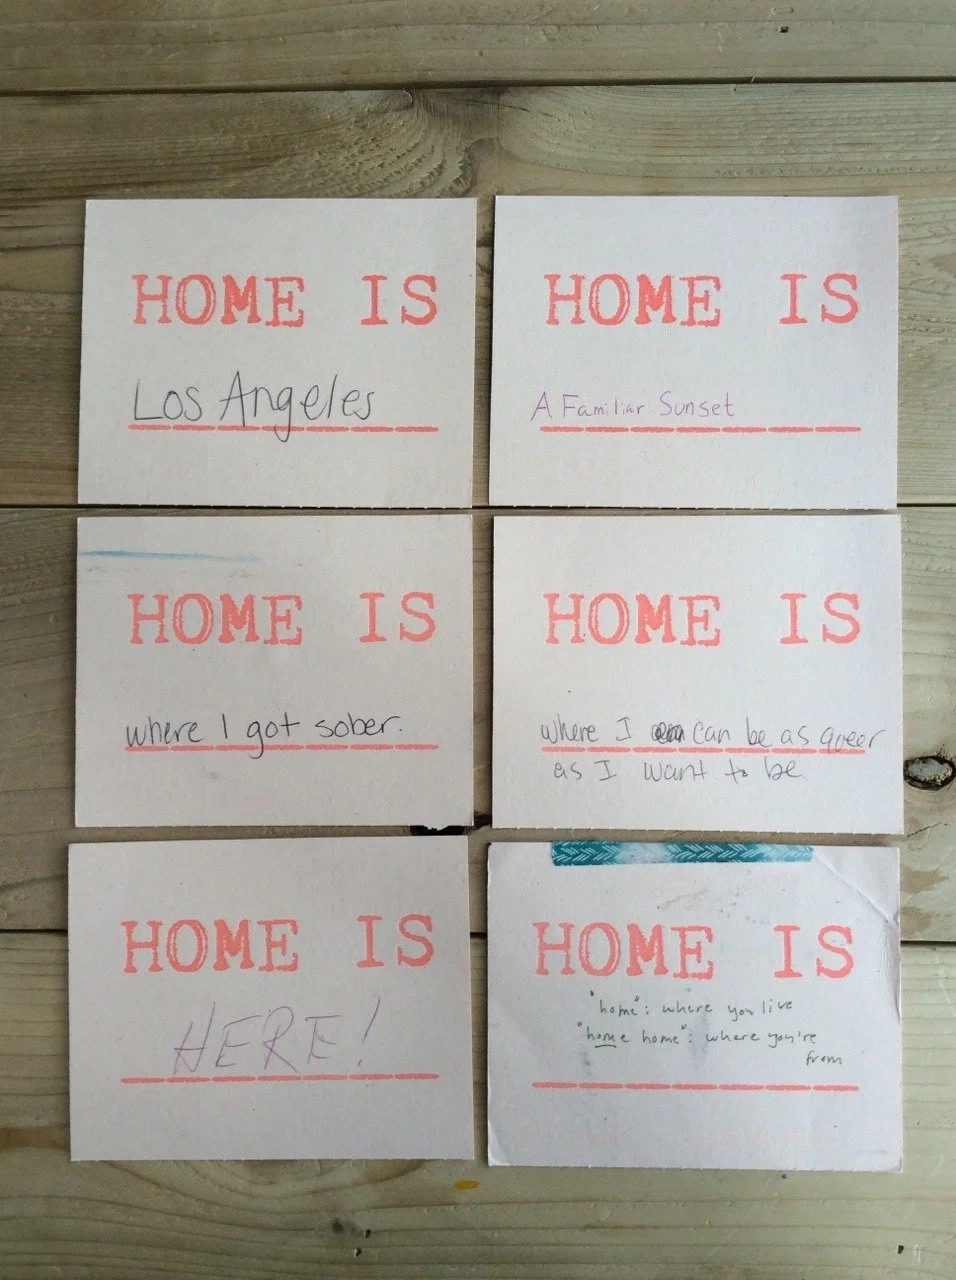 HOME IS
Los Angeles
HOME IS
A Familiar Sunset
HOME IS
where I got sober.
HOME IS
where I can be as queer
as I want to be.
HOME IS
HERE!
HOME IS
"home": where you live
"home home": where you're
from